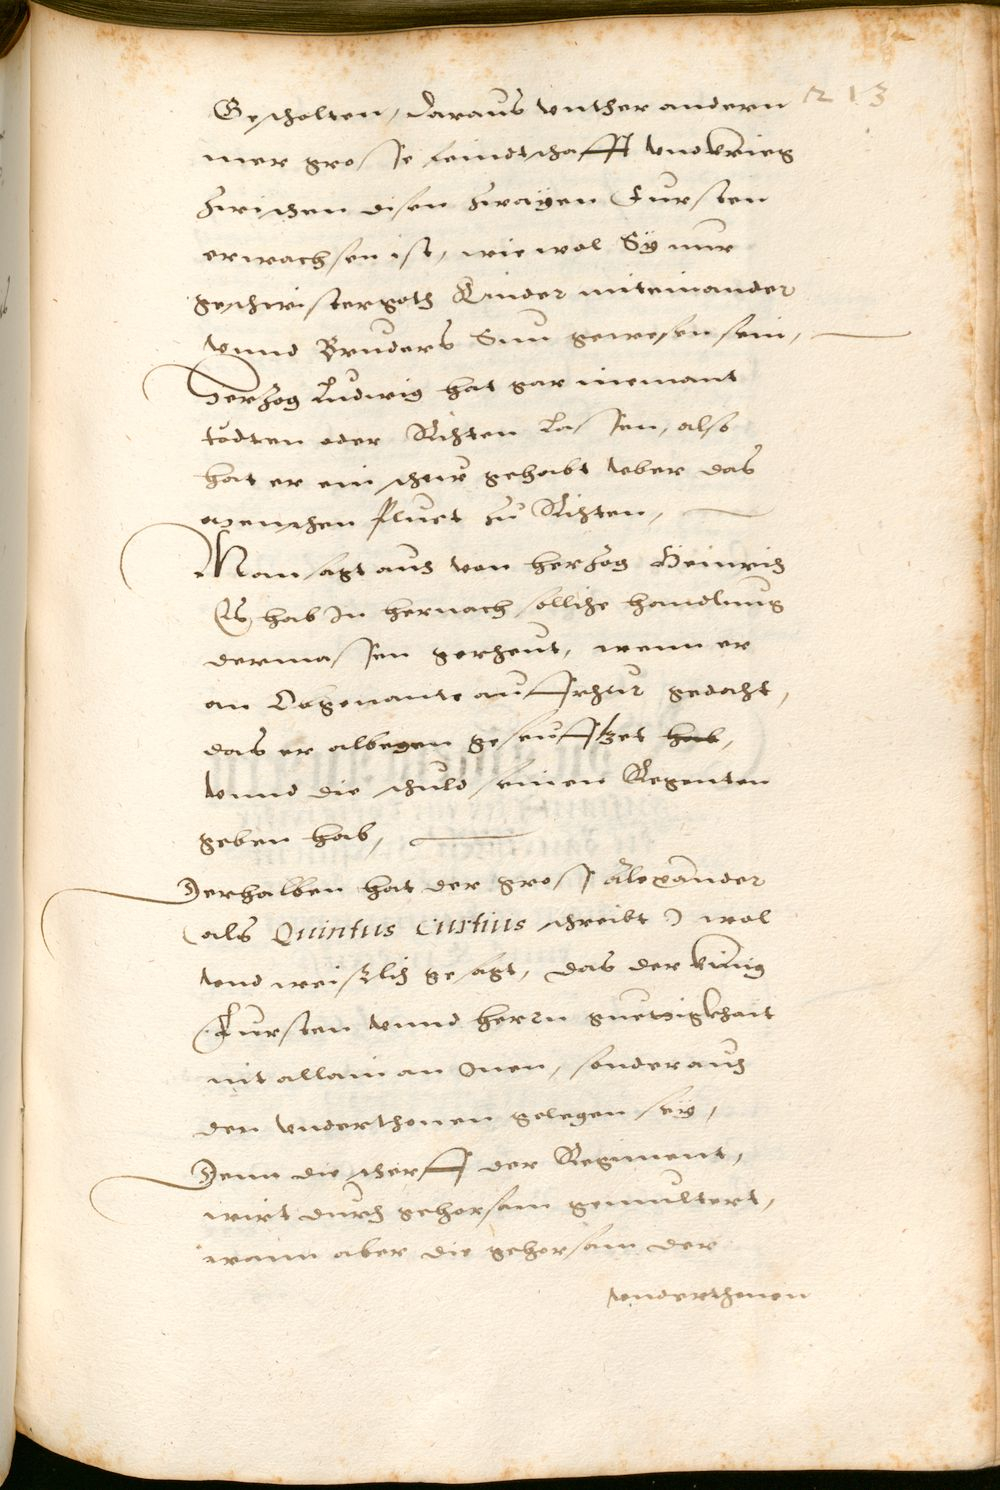 213
Gescholten, daraus vnther andern
mer grosse feindtschafft vnd krieg
zwischen disen zwayen Fursten
erwachsen ist, wie wol Sy nur
geschwistergoth Kinder miteinander
vnnd Bruders Sun gewesen sein,
Herzog Ludwig hat gar niemant
tödten oder Richten lassen, also
hat er ein scheir gehabt veber das
menschen pluet zu Richten,
Man sagt auch von herzog Heinrich
Es hab In hernach solliche handlung
dermassen gerheut, wenn er
an Obgenante auffrhur gedacht,
das er albegen geseufftzet hab,
vnnd die schuld seinen Regenten
geben hab,
Derhalben hat der gross Alexander
(als Quintus Curtius schreibt) wol
vnd weißlich gesagt, das der kunig
Fursten vnnd herrn guetigkhait
nit allain an Inen, sonder auch
den vnderthonen gelegen sey,
Denn die scherff der Regiment,
wirt durch gehorsam gemultert,
wann aber die gehorsam der
vnderthonen